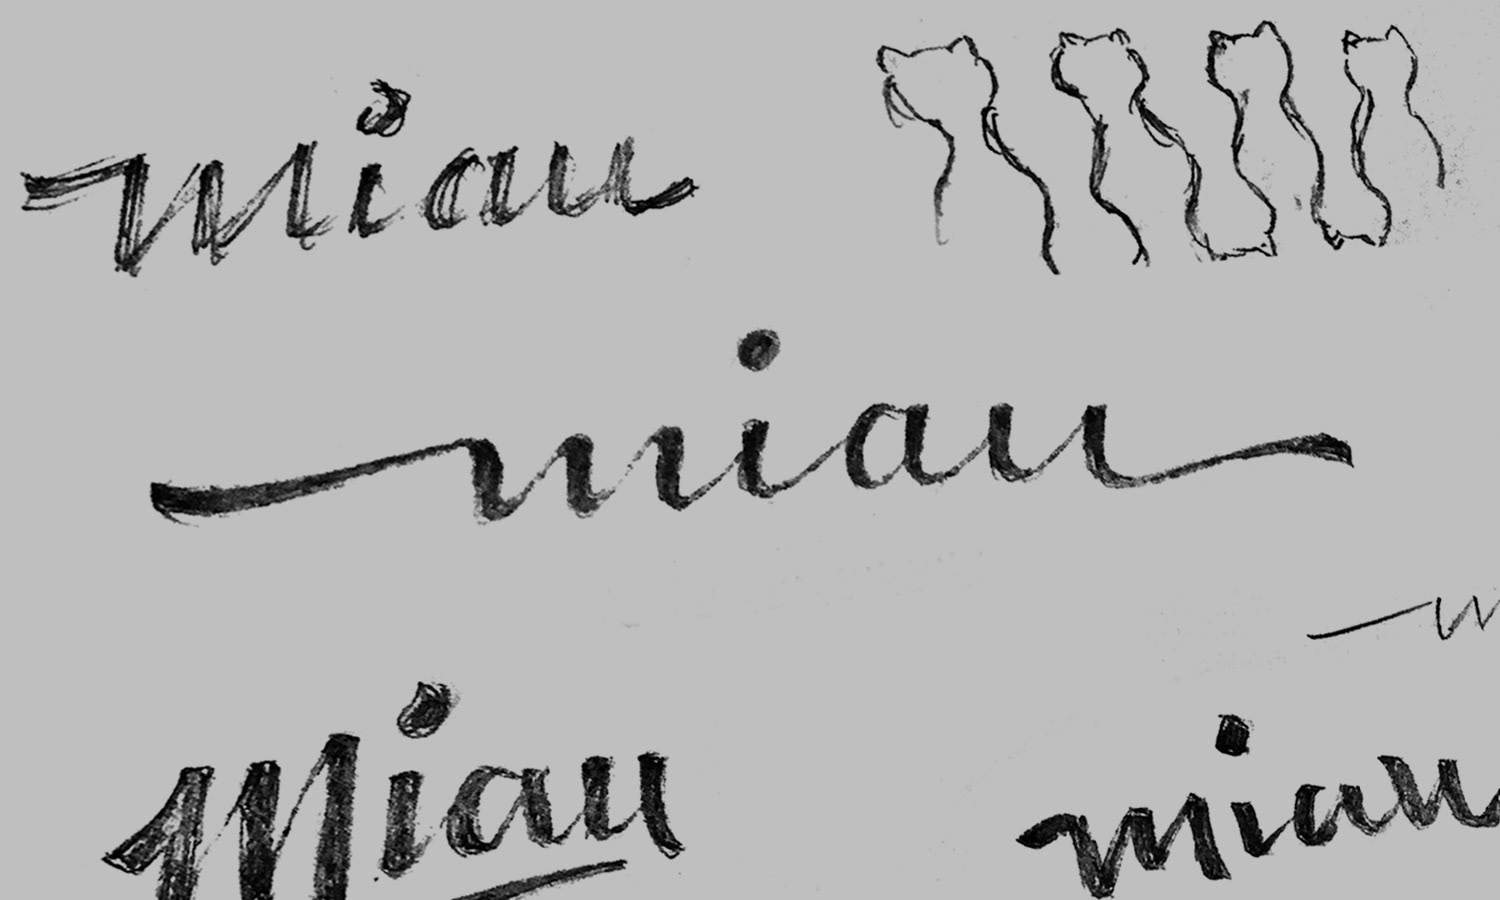 miau
miau
Miau
miau